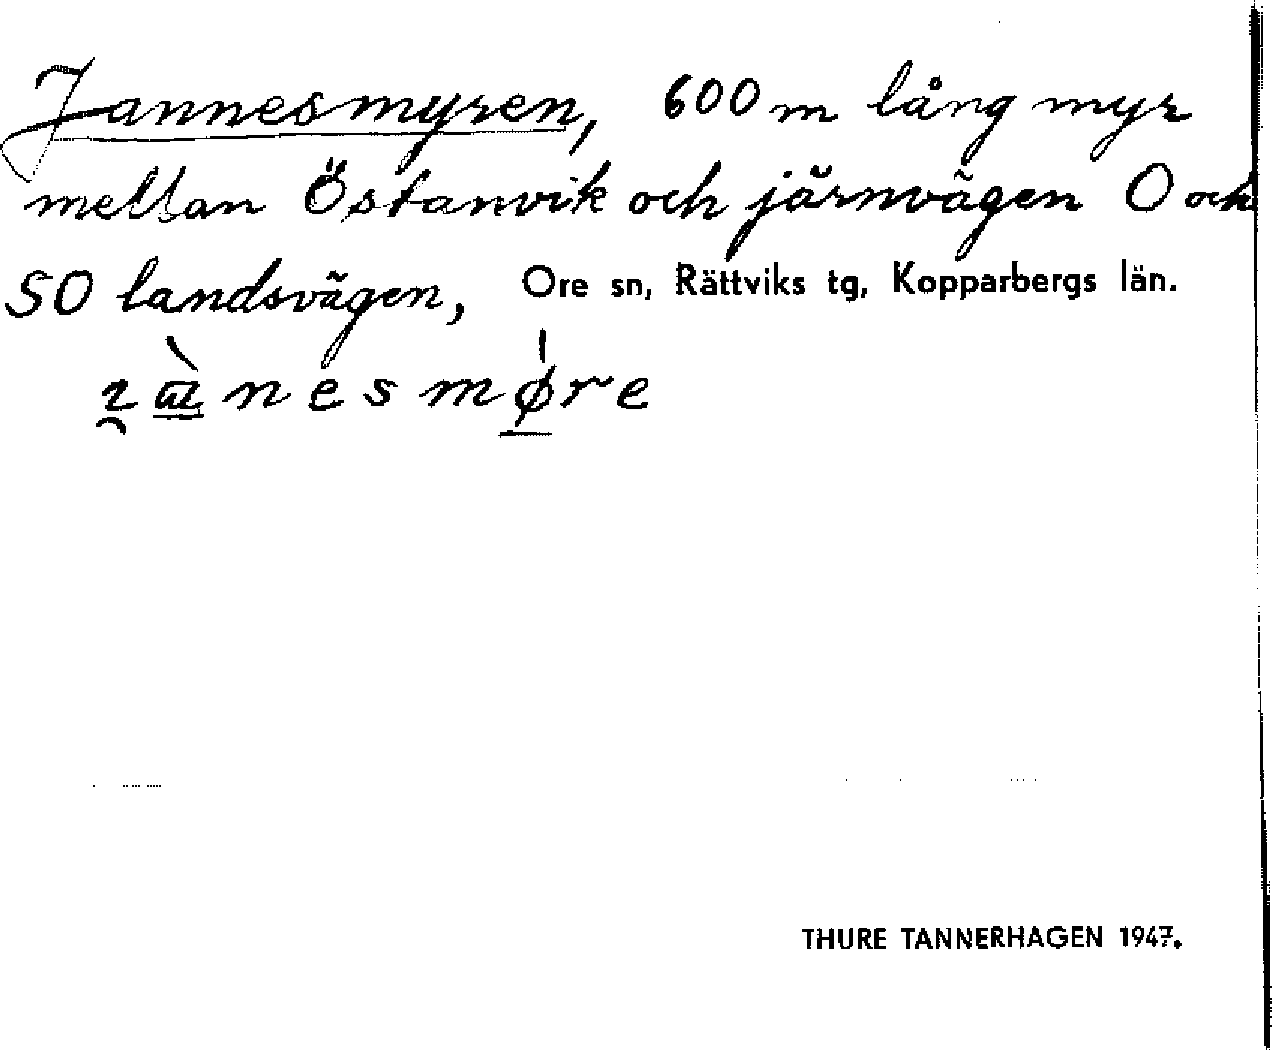 Jannesmyren, 600 m lång myr
mellan Östanvik och järnvägen O och
SO landsvägen, Ore sn, Rättviks tg, Kopparbergs län.
THURE TANNERHAGEN 1947.